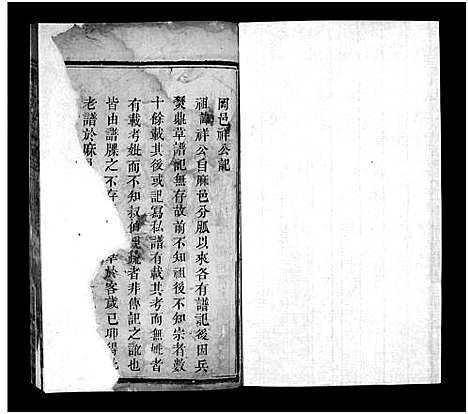 岡邑祥公記
祖諱祥公自麻邑分脈以來各有譜記後因兵
燹雖草譜記無存故前不知祖後不知宗者數
十餘載其後或記寫私譜有載其考而無妣者
有載考妣而不知叔伯親疏者非傳記之訛也
皆由譜牒之不存 於客歲己卯
老譜於麻